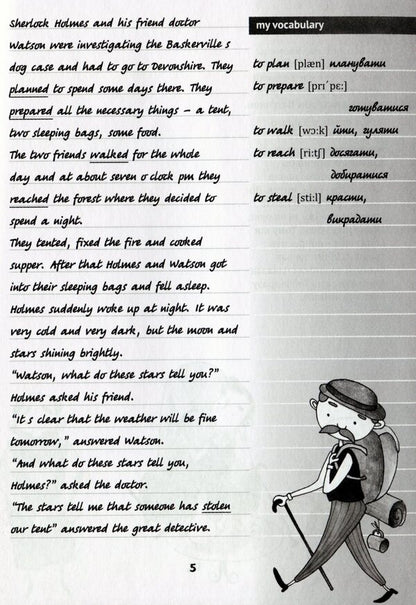 Sherlock Holmes and his friend doctor
Watson were investigating the Baskerville s
dog case and had to go to Devonshire. They
planned to spend some days there. They
prepared all the necessary things – a tent,
two sleeping bags, some food.
The two friends walked for the whole
day and at about seven o clock pm they
reached the forest where they decided to
spend a night.
They tented, fixed the fire and cooked
supper. After that Holmes and Watson got
into their sleeping bags and fell asleep.
Holmes suddenly woke up at night. It was
very cold and very dark, but the moon and
stars shining brightly.
“Watson, what do these stars tell you?”
Holmes asked his friend.
“It s clear that the weather will be fine
tomorrow,” answered Watson.
“And what do these stars tell you,
Holmes?” asked the doctor.
“The stars tell me that someone has stolen
our tent” answered the great detective.
my vocabulary
to plan [plæn] планувати
to prepare [prɪ´pɛ:]
готуватися
to walk [wɔ:k] йти, гуляти
to reach [ri:tʃ] досягати,
добиратися
to steal [sti:l] красти,
викрадати
5